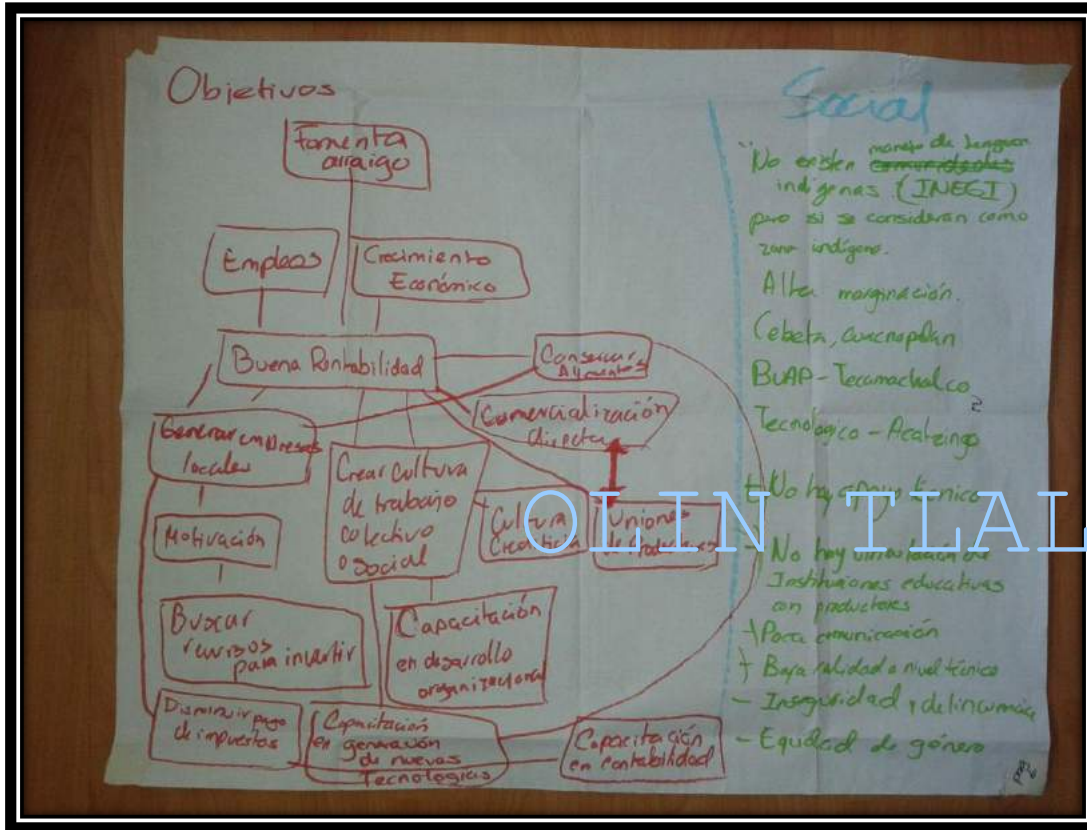 Objetivos
Fomenta
arraigo
Empleos
Crecimiento
Económico
Buena Rentabilidad
Conservar
Alimentos
Comercialización
directa
Generar empresas
locales
Crear cultura
de trabajo
colectivo
o social
Cultura
Crediticia
Uniones
de productores
Motivación
Buscar
recursos
para invertir
Capacitación
en desarrollo
organizacional
Disminuir pago
de impuestos
Capacitación
en generación
de nuevas
Tecnologías
Capacitación
en contabilidad
Social
No existen manejo de lenguas
indígenas (INEGI)
pero si se consideran como
zona indígena.
Alta marginación.
Cebeta,
BUAP - Tecamachalco
Tecnologico - Acatzingo
No hay apoyo técnico
- No hay vinculación de
Instituciones educativas
con productores
Poca comunicación
Baja calidad a nivel técnico
- Inseguridad y delincuencia
- Equidad de género
OLIN TLAL